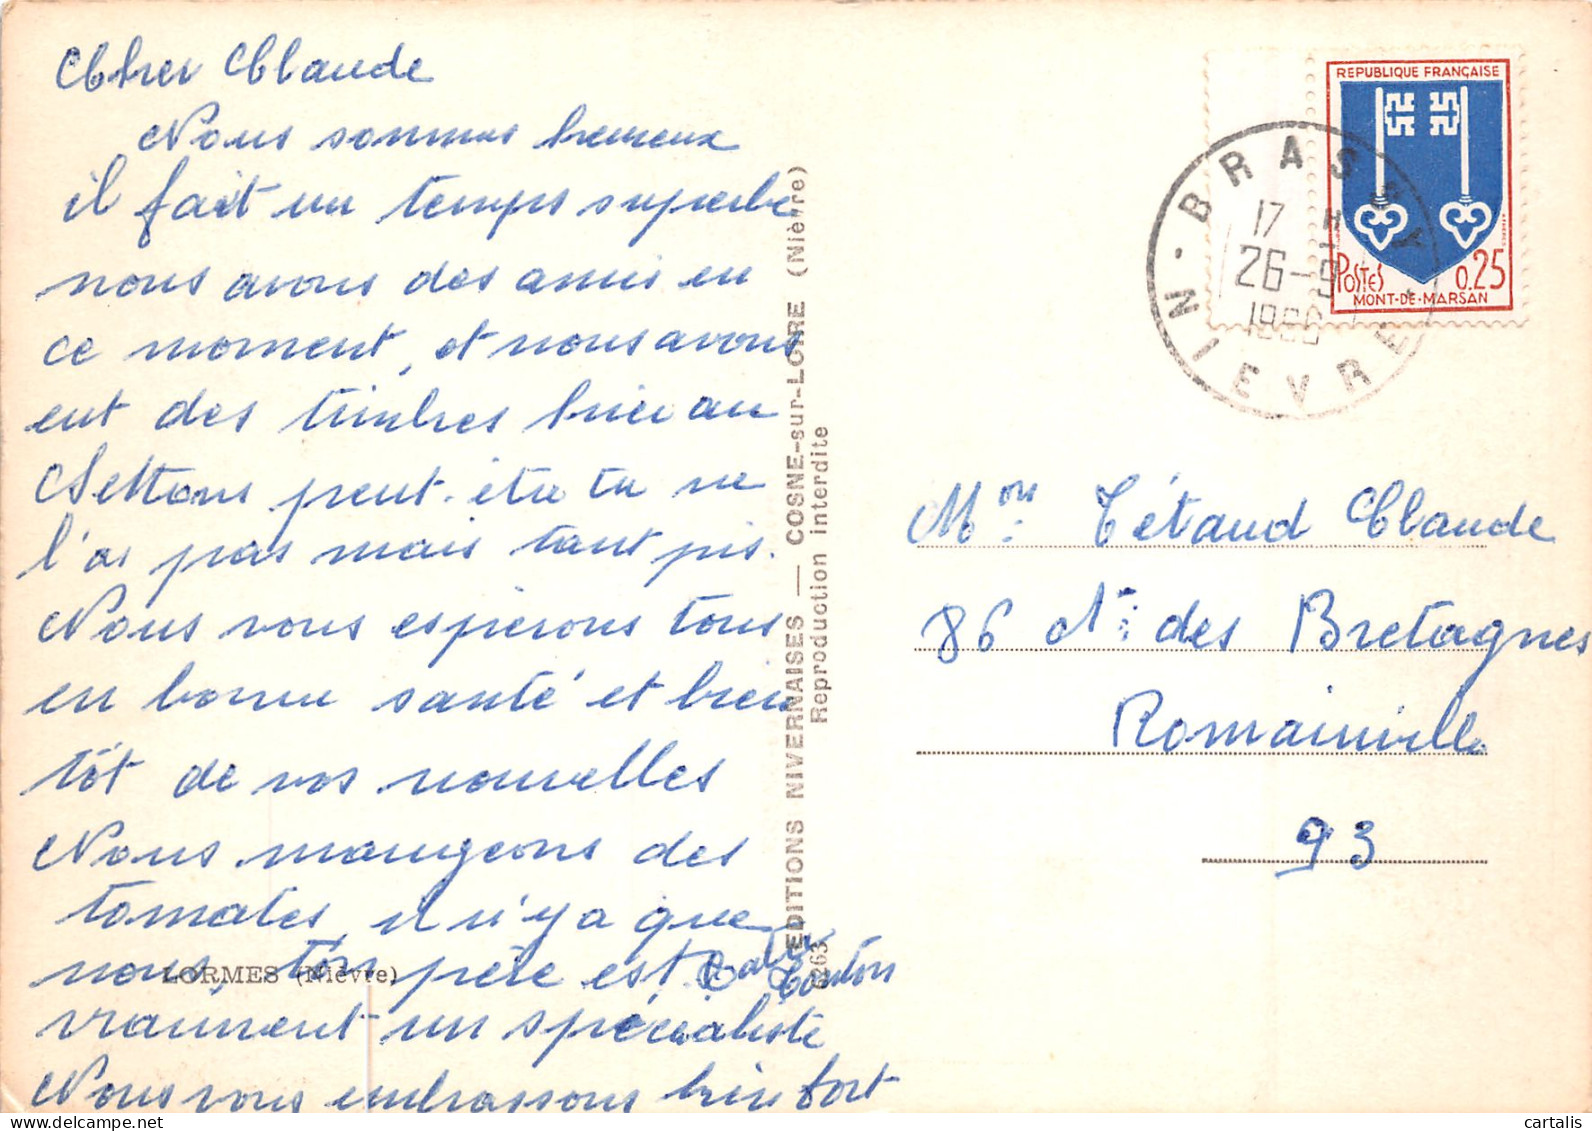 Cher Claude
Nous sommes heureux
il fait un temps superbe
nous avons des amis en
ce moment, et nous avons
eut des timbres hier au
Settons peut-être tu ne
l'as pas mais tant pis.
Nous vous espérons tous
en bonne santé et bien
tôt de vos nouvelles
Nous mangeons des
tomates, il n'y a que
nous, ton père est
vraiment un spécialiste
Nous vous embrassons bien fort
Tonton
LORMES (Nièvre)
EDITIONS NIVERNAISES — COSNE-sur-LOIRE (Nièvre)
Reproduction interdite
6263
REPUBLIQUE FRANÇAISE
POSTES 0.25
MONT-DE-MARSAN
BRASSY
17 H
26-9
NIEVRE
Mons: Tétaud Claude
86 des Bretagnes
Romainville
93
cartalis